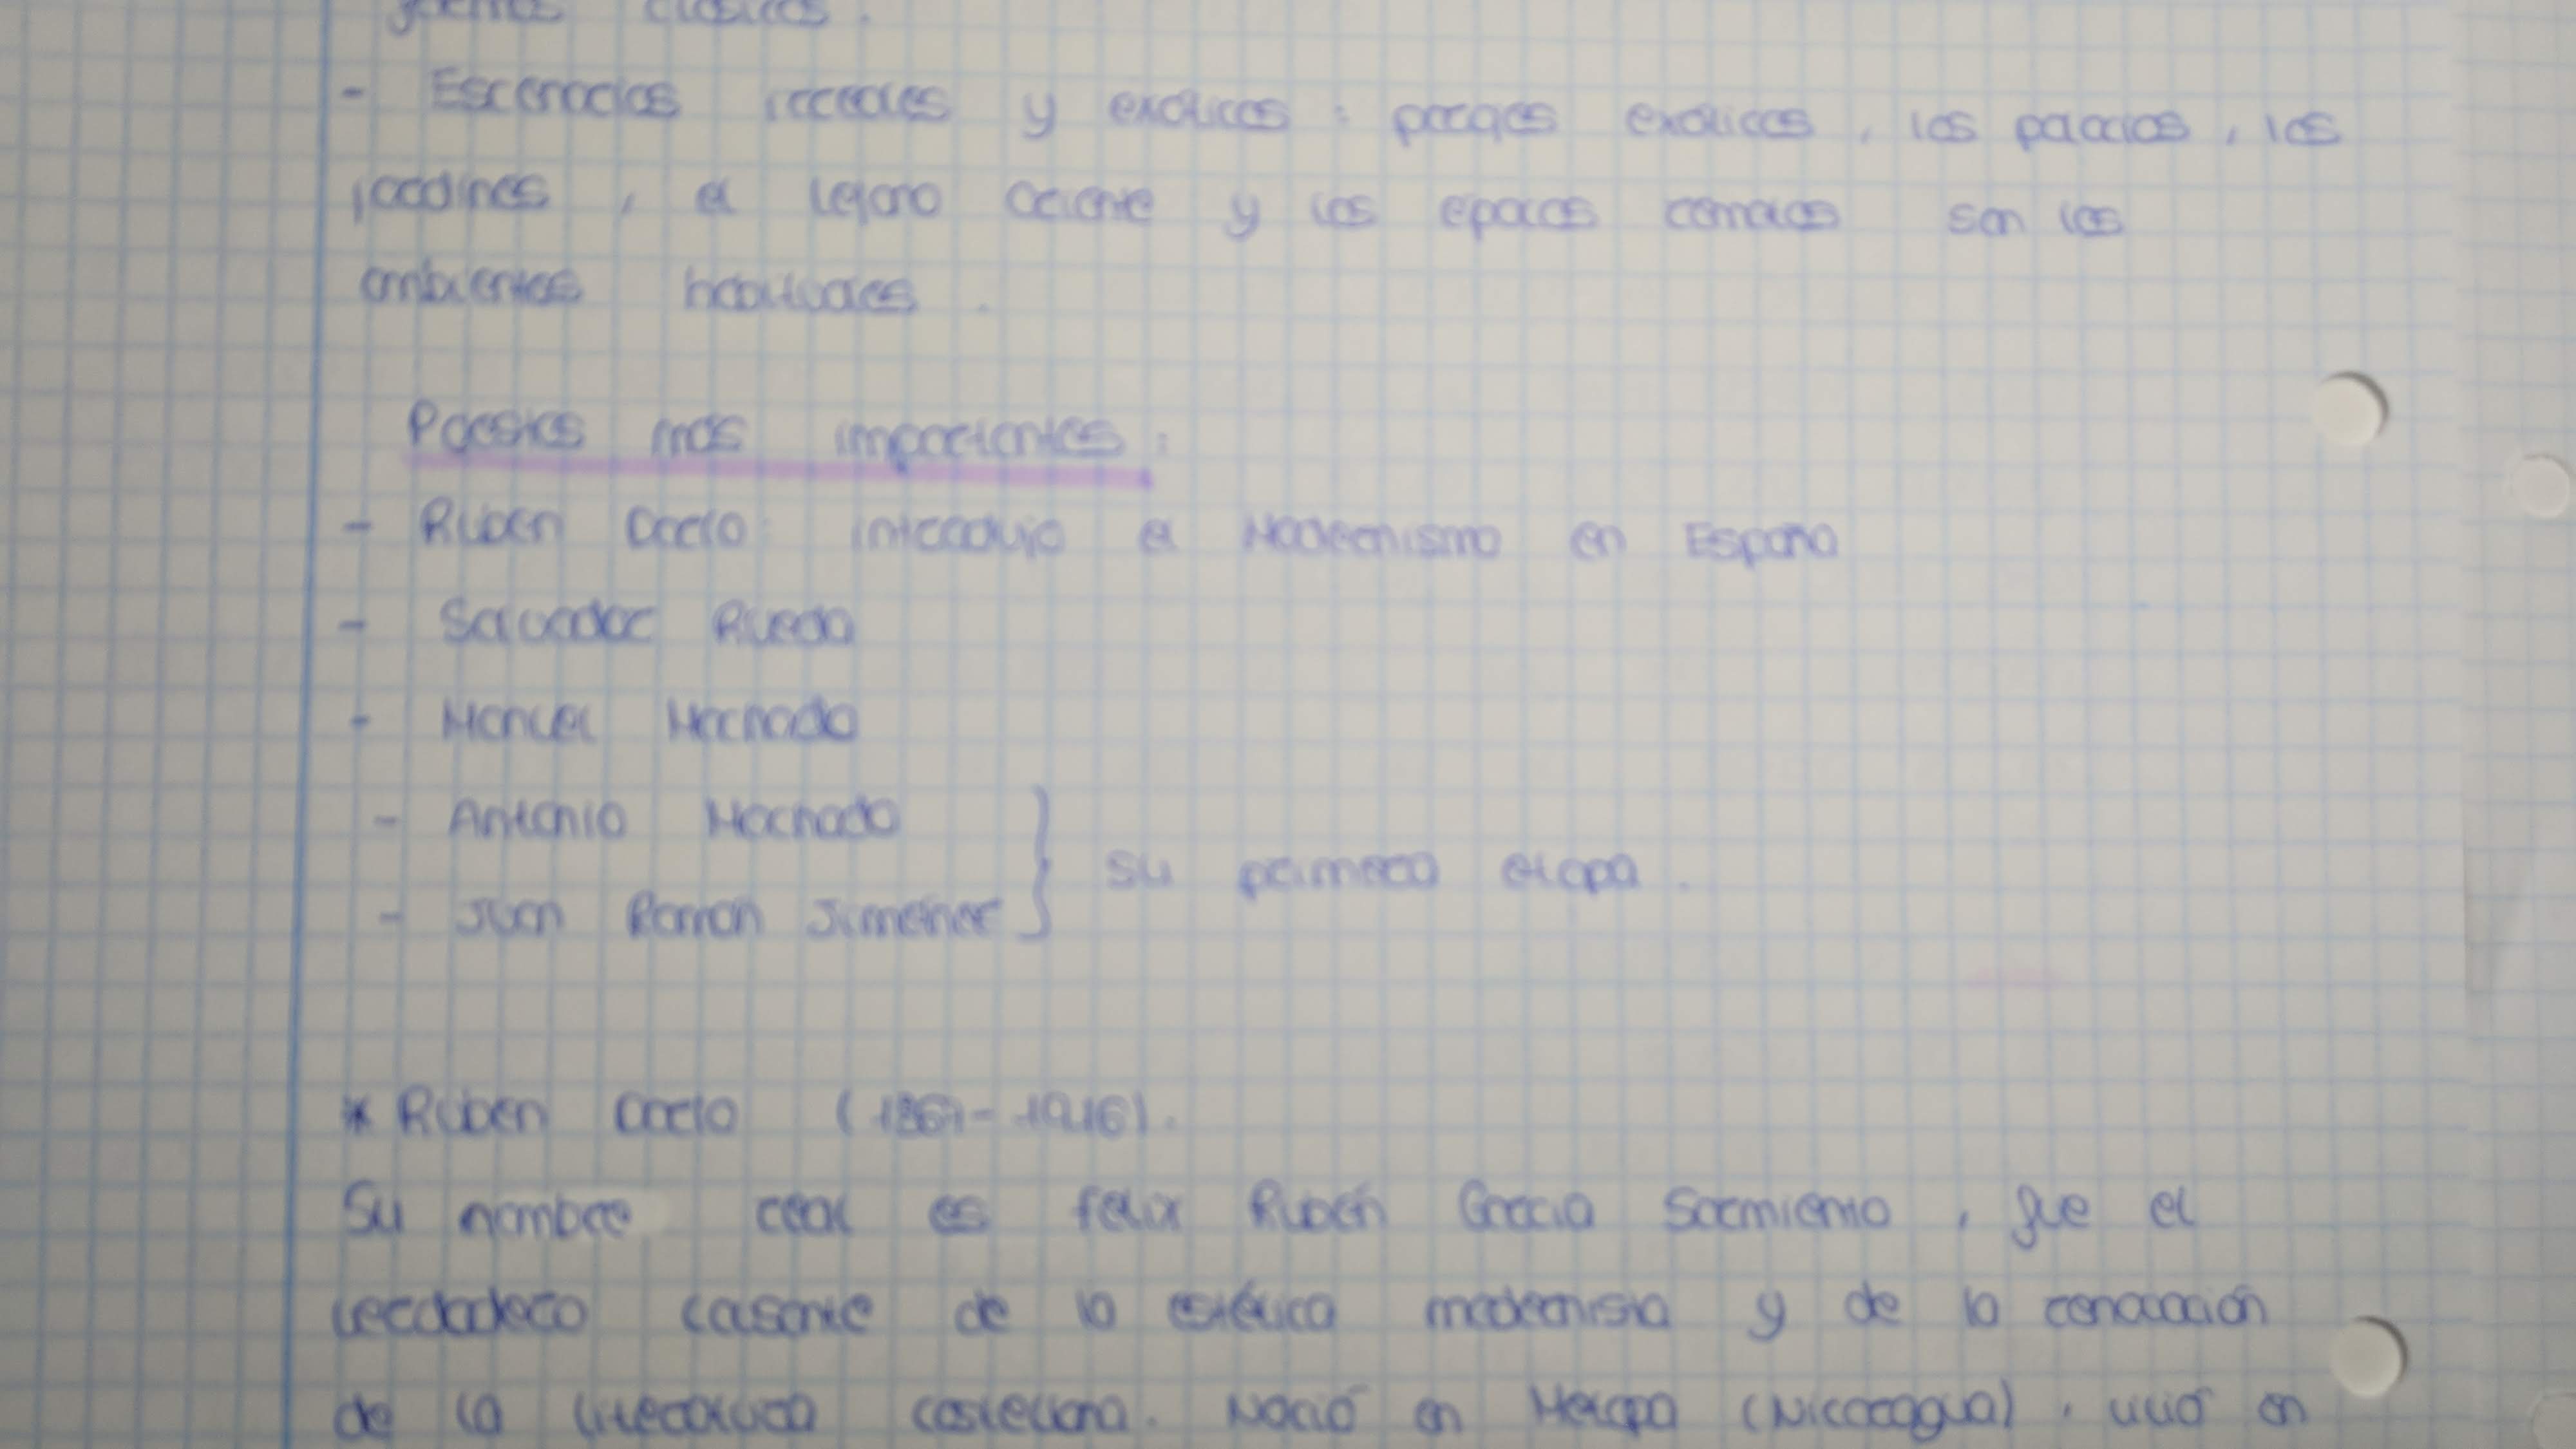 clásicos.
- Escenarios irreales y exóticos: parajes exóticos, los palacios, los
jardines, el lejano Oriente y las épocas remotas son los
ambientes habituales.
Poesias más importantes:
- Rubén Darío: introdujo el Modernismo en España
- Salvador Rueda
- Manuel Machado
- Antonio Machado
- Juan Ramón Jiménez } su primera etapa.
* Rubén Darío (1867-1916).
Su nombre real es Felix Rubén García Sarmiento, fue el
verdadero causante de la estética modernista y de la
de la literatura castellana. Nació en Metapa (Nicaragua), vivió en